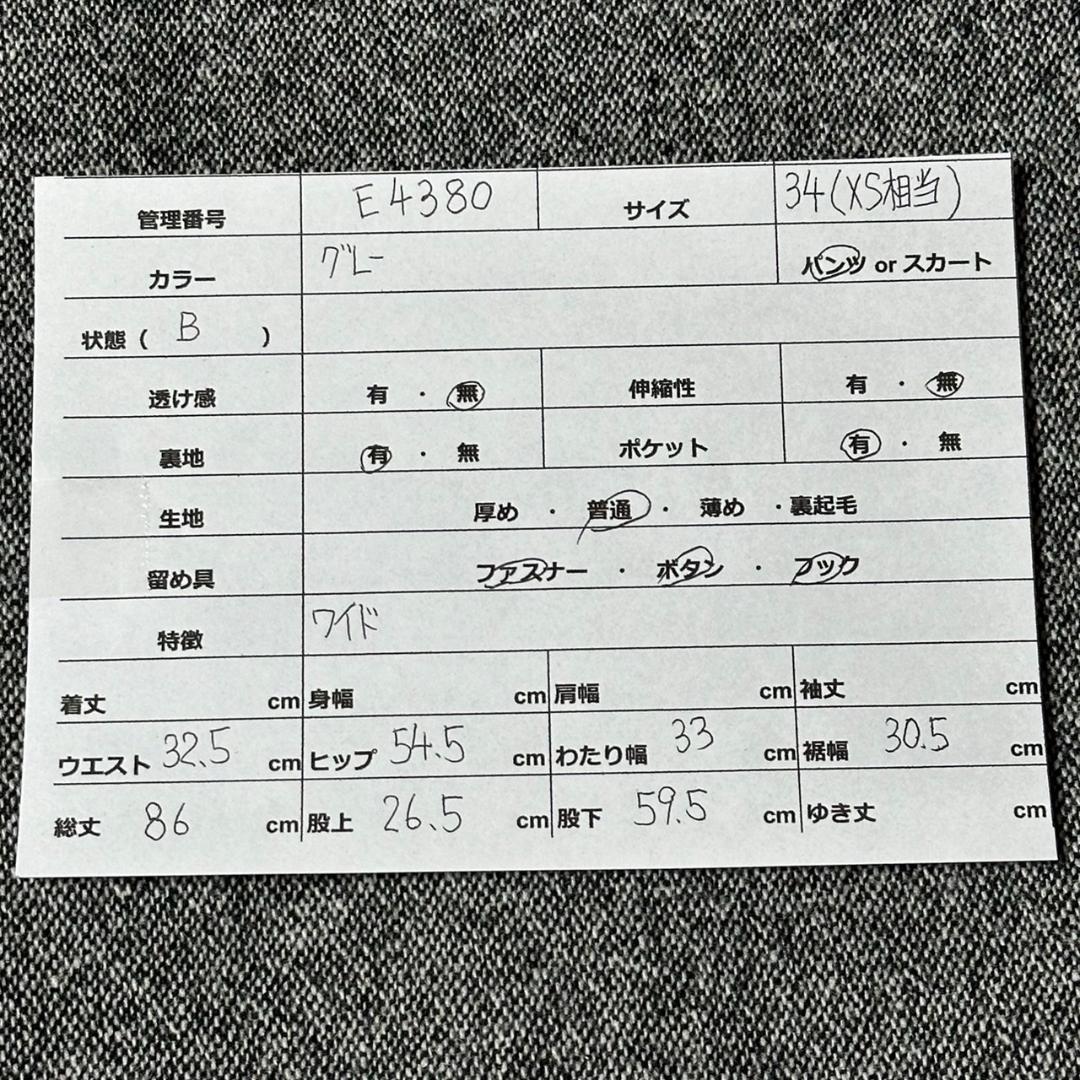 管理番号 E4380 サイズ 34(XS相当)
カラー グレー パンツ or スカート
状態 ( B )
透け感 有 ・ 無 伸縮性 有 ・ 無
裏地 有 ・ 無 ポケット 有 ・ 無
生地 厚め ・ 普通 ・ 薄め ・裏起毛
留め具 ファスナー ・ ボタン ・ フック
特徴 ワイド
着丈 cm 身幅 cm 肩幅 cm 袖丈 cm
ウエスト 32.5 cm ヒップ 54.5 cm わたり幅 33 cm 裾幅 30.5 cm
総丈 86 cm 股上 26.5 cm 股下 59.5 cm ゆき丈 cm